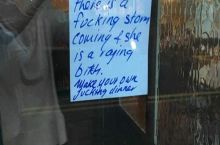 there is a
fucking storm
coming & she
is a raping
bitch.
Make your own
fucking dinner